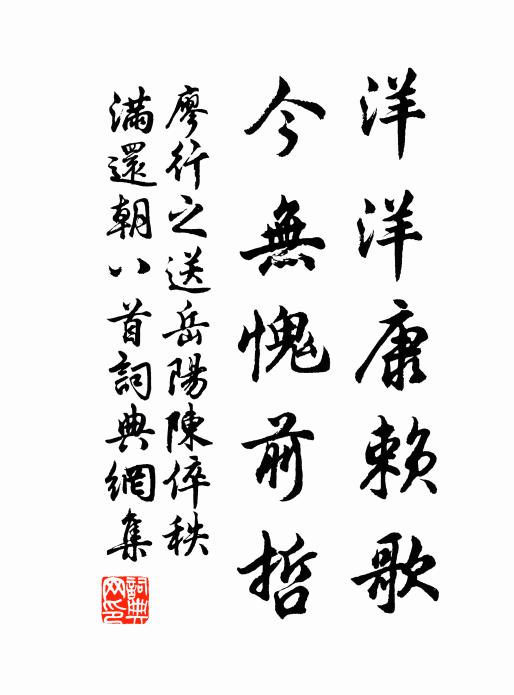 洋洋康賴歌
今無愧前哲
廖行之送岳陽陳倅秩
滿還朝八首詞典網集
詞典網印